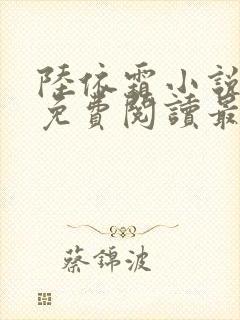 陸依霜小說
免費閱讀最
蔡錦波